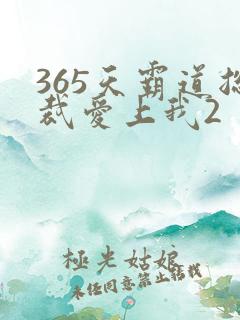 365天霸道总
裁爱上我2
極光姑娘
未经同意禁止转载